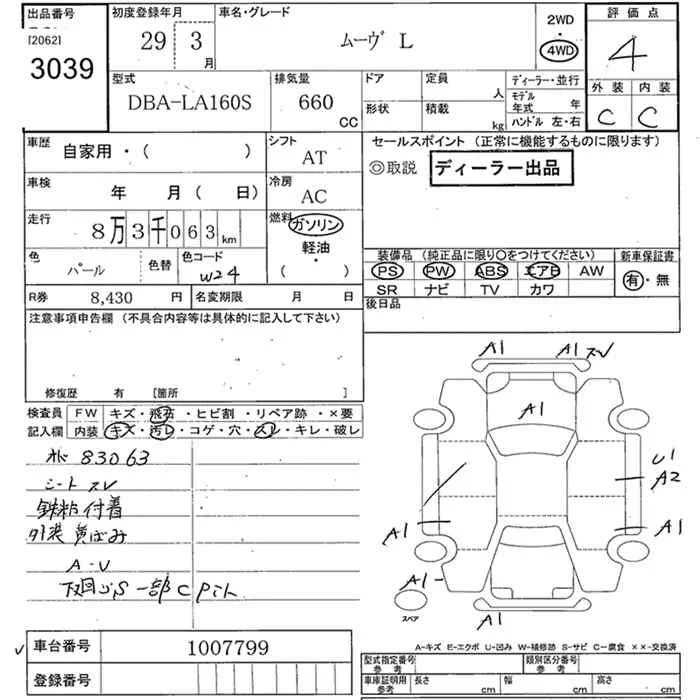 出品番号 初度登録年月 車名・グレード 評価点
[2062] 29 3月 ムーヴ L 2WD・4WD 4
3039
型式 排気量 ドア 定員 人 ディーラー・並行 外装 内装
DBA-LA160S 660 CC 形状 積載 kg モデル年式 年 C C
ハンドル 左・右
車歴 自家用・( ) シフト AT セールスポイント (正常に機能するものに限ります)
◎取説 ディーラー出品
車検 年 月( 日) 冷房 AC
走行 8万3千063km 燃料 ガソリン・軽油
( )
色 パール 色替 色コード W24 装備品 (純正品に限り〇をつけてください) 新車保証書
PS PW ABS エアB AW 有・無
SR ナビ TV カワ
R券 8,430 円 名変期限 月 日 後日品
注意事項申告欄 (不具合内容等は具体的に記入して下さい)
修復歴 有 [箇所 ]
検査員 FW キズ・飛石・ヒビ割・リペア跡・×要
記入欄 内装 キズ・汚レ・コゲ・穴・スレ・キレ・破レ
83063
シート スレ
鉄粉付着
外装 黄ばみ
A・U
下回りS 一部C
A1 A1 スレ
A1
U1
A2
A1 A1
A1
スペア
A1
A-キズ E-エクボ U-凹み W-補修跡 S-サビ C-腐食 ××-交換済
車台番号 1007799
登録番号
型式指定番号 参考 類別区分番号 参考
車庫証明用 参考 長さ cm 幅 cm 高さ cm